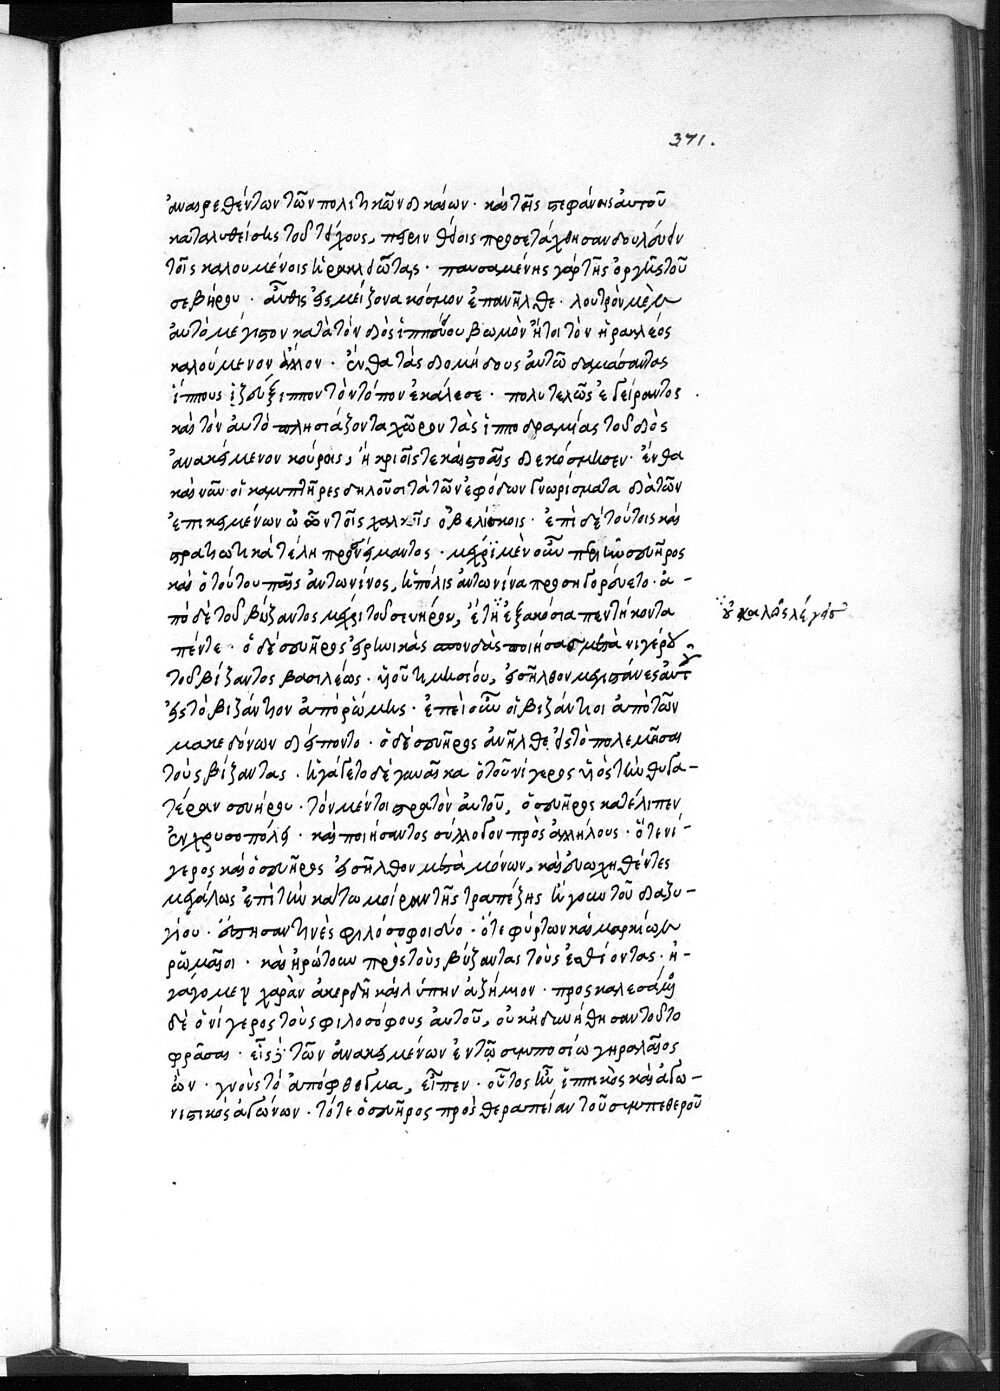 371.
ἀναιρεθέντων τῶν πολιτικῶν δικαίων · καὶ τῆς στεφάνης αὐτοῦ
καταλυθείσης τοῦ τείχους, περινθίοις προσετάχθησαν δουλεύειν
τοῖς καλουμένοις ἡρακλεώταις · παυσαμένης γὰρ τῆς ὀργῆς τοῦ
σεβήρου · αὖθις εἰς μείζονα κόσμον ἐπανῆλθε · λουτρὸν μὲν
αὐτὸ μέγιστον κατὰ τὸν διὸς ἱππίου βωμὸν ἤτοι τὸν ἡρακλέος
καλούμενον ἄλσον · ἔνθα τὰς διομήδους αὐτῶ δαμάσαντος
ἵππους ζεύξιππον τὸν τόπον ἐκάλεσε · πολυτελῶς ἐγείραντος
καὶ τὸν αὐτὸ πλησιάζοντα χῶρον τὰς ἱπποδρομίας τοῦ διὸς
ἀνακείμενον κούροις, ἰκρίοις τε καὶ στοαῖς διεκόσμησεν · ἔνθα
καὶ νῦν οἱ καμπτῆρες δηλοῦσι τὰ τῶν ἐφόρων γνωρίσματα διὰ τῶν
ἐπικειμένων ὠῶν τοῖς χαλκοῖς ὀβελίσκοις · ἐπὶ δὲ τούτοις καὶ
στρατιωτικὰ τέλη προσνείμαντος · μέχρι μὲν οὖν περιῆν σευῆρος
καὶ ὁ τούτου παῖς ἀντωνῖνος, ἡ πόλις ἀντωνίνα προσηγορεύετο · ἀ-
πὸ δὲ τοῦ βύζαντος μέχρι τοῦ σευήρου, ἔτη ἑξακόσια πεντήκοντα
οὐ καλῶς λέγει
πέντε · ὁ δὲ σευῆρος εἰρηνικὰς σπονδὰς ποιήσας μετὰ νιγέρου
τοῦ βύζαντος βασιλέως · υἱοῦ τιμησίου, εἰσῆλθον
εἰς τὸ βυζάντιον ἀπὸ ῥώμης · ἐπεὶ οὖν οἱ βυζάντιοι ἀπὸ τῶν
μακεδόνων διέποντο · ὁ δὲ σευῆρος ἀνῆλθε εἰς τὸ πολεμῆσαι
τοὺς βύζαντας · ἠγάγετο δὲ γυναῖκα ὁ τοῦ νίγερος υἱὸς τὴν θυγα-
τέραν σευήρου · τὸν μέντοι στρατὸν αὐτοῦ, ὁ σευῆρος κατέλιπεν
ἐν χρυσοπόλει · καὶ ποιήσαντος σύλλογον πρὸς ἀλλήλους · ὅτε νί-
γερος καὶ ὁ σευῆρος εἰσῆλθον μετὰ μόνων, καὶ εὐωχηθέντες
μεγάλως ἐπὶ τὴν κάτω μοίραν τῆς τραπέζης ἤγουν τοῦ διαζυ-
γίου · ἔστησάν τινες φιλόσοφοι δύο · ὅτε φύρτων καὶ μαρκίων
ῥωμαῖοι · καὶ ἠρώτουν πρὸς τοὺς βύζαντας τοὺς ἐσθίοντας · ἠ-
γάγομεν χαρὰν ἀκερδῆ καὶ λύπην ἀζήμιον · προσκαλεσάμενος
δὲ ὁ νίγερος τοὺς φιλοσόφους αὐτοῦ, οὐκ ἠδυνήθησαν τοῦτο
φρᾶσαι · εἷς τῶν ἀνακειμένων ἐν τῷ συμποσίω γηραλαῖος
ὢν · γνοὺς τὸ ἀπόφθεγμα, εἶπεν · οὗτος ἦν ἱππικὸς καὶ ἀγω-
νιστικὸς ἀγώνων · τότε ὁ σευῆρος πρὸς θεραπείαν τοῦ συμπεθεροῦ